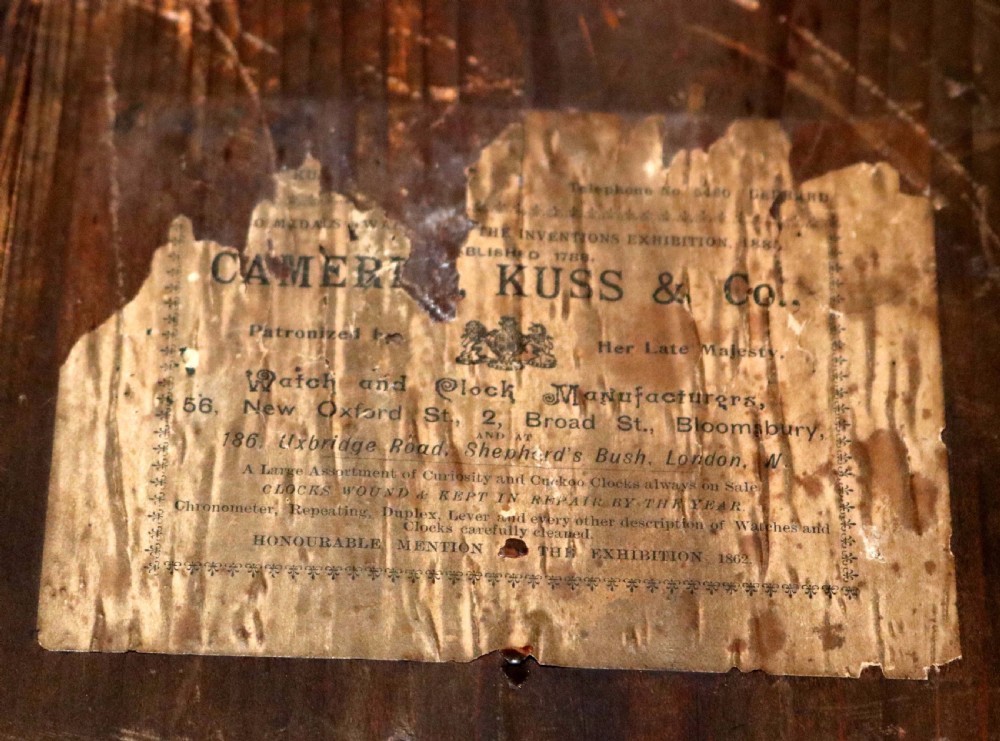 Telephone No. GERRARD
THE INVENTIONS EXHIBITION, 1885.
BLISHED 1788.
CAMER , KUSS & Co.,
Patronized by Her Late Majesty.
Watch and Clock Manufacturers,
56, New Oxford St., 2, Broad St., Bloomsbury,
AND AT
186, Uxbridge Road, Shepherd's Bush, London, W.
A Large Assortment of Curiosity and Cuckoo Clocks always on Sale
CLOCKS WOUND & KEPT IN REPAIR BY THE YEAR
Chronometer, Repeating, Duplex, Lever and every other description of Watches and
Clocks carefully cleaned.
HONOURABLE MENTION THE EXHIBITION 1862.